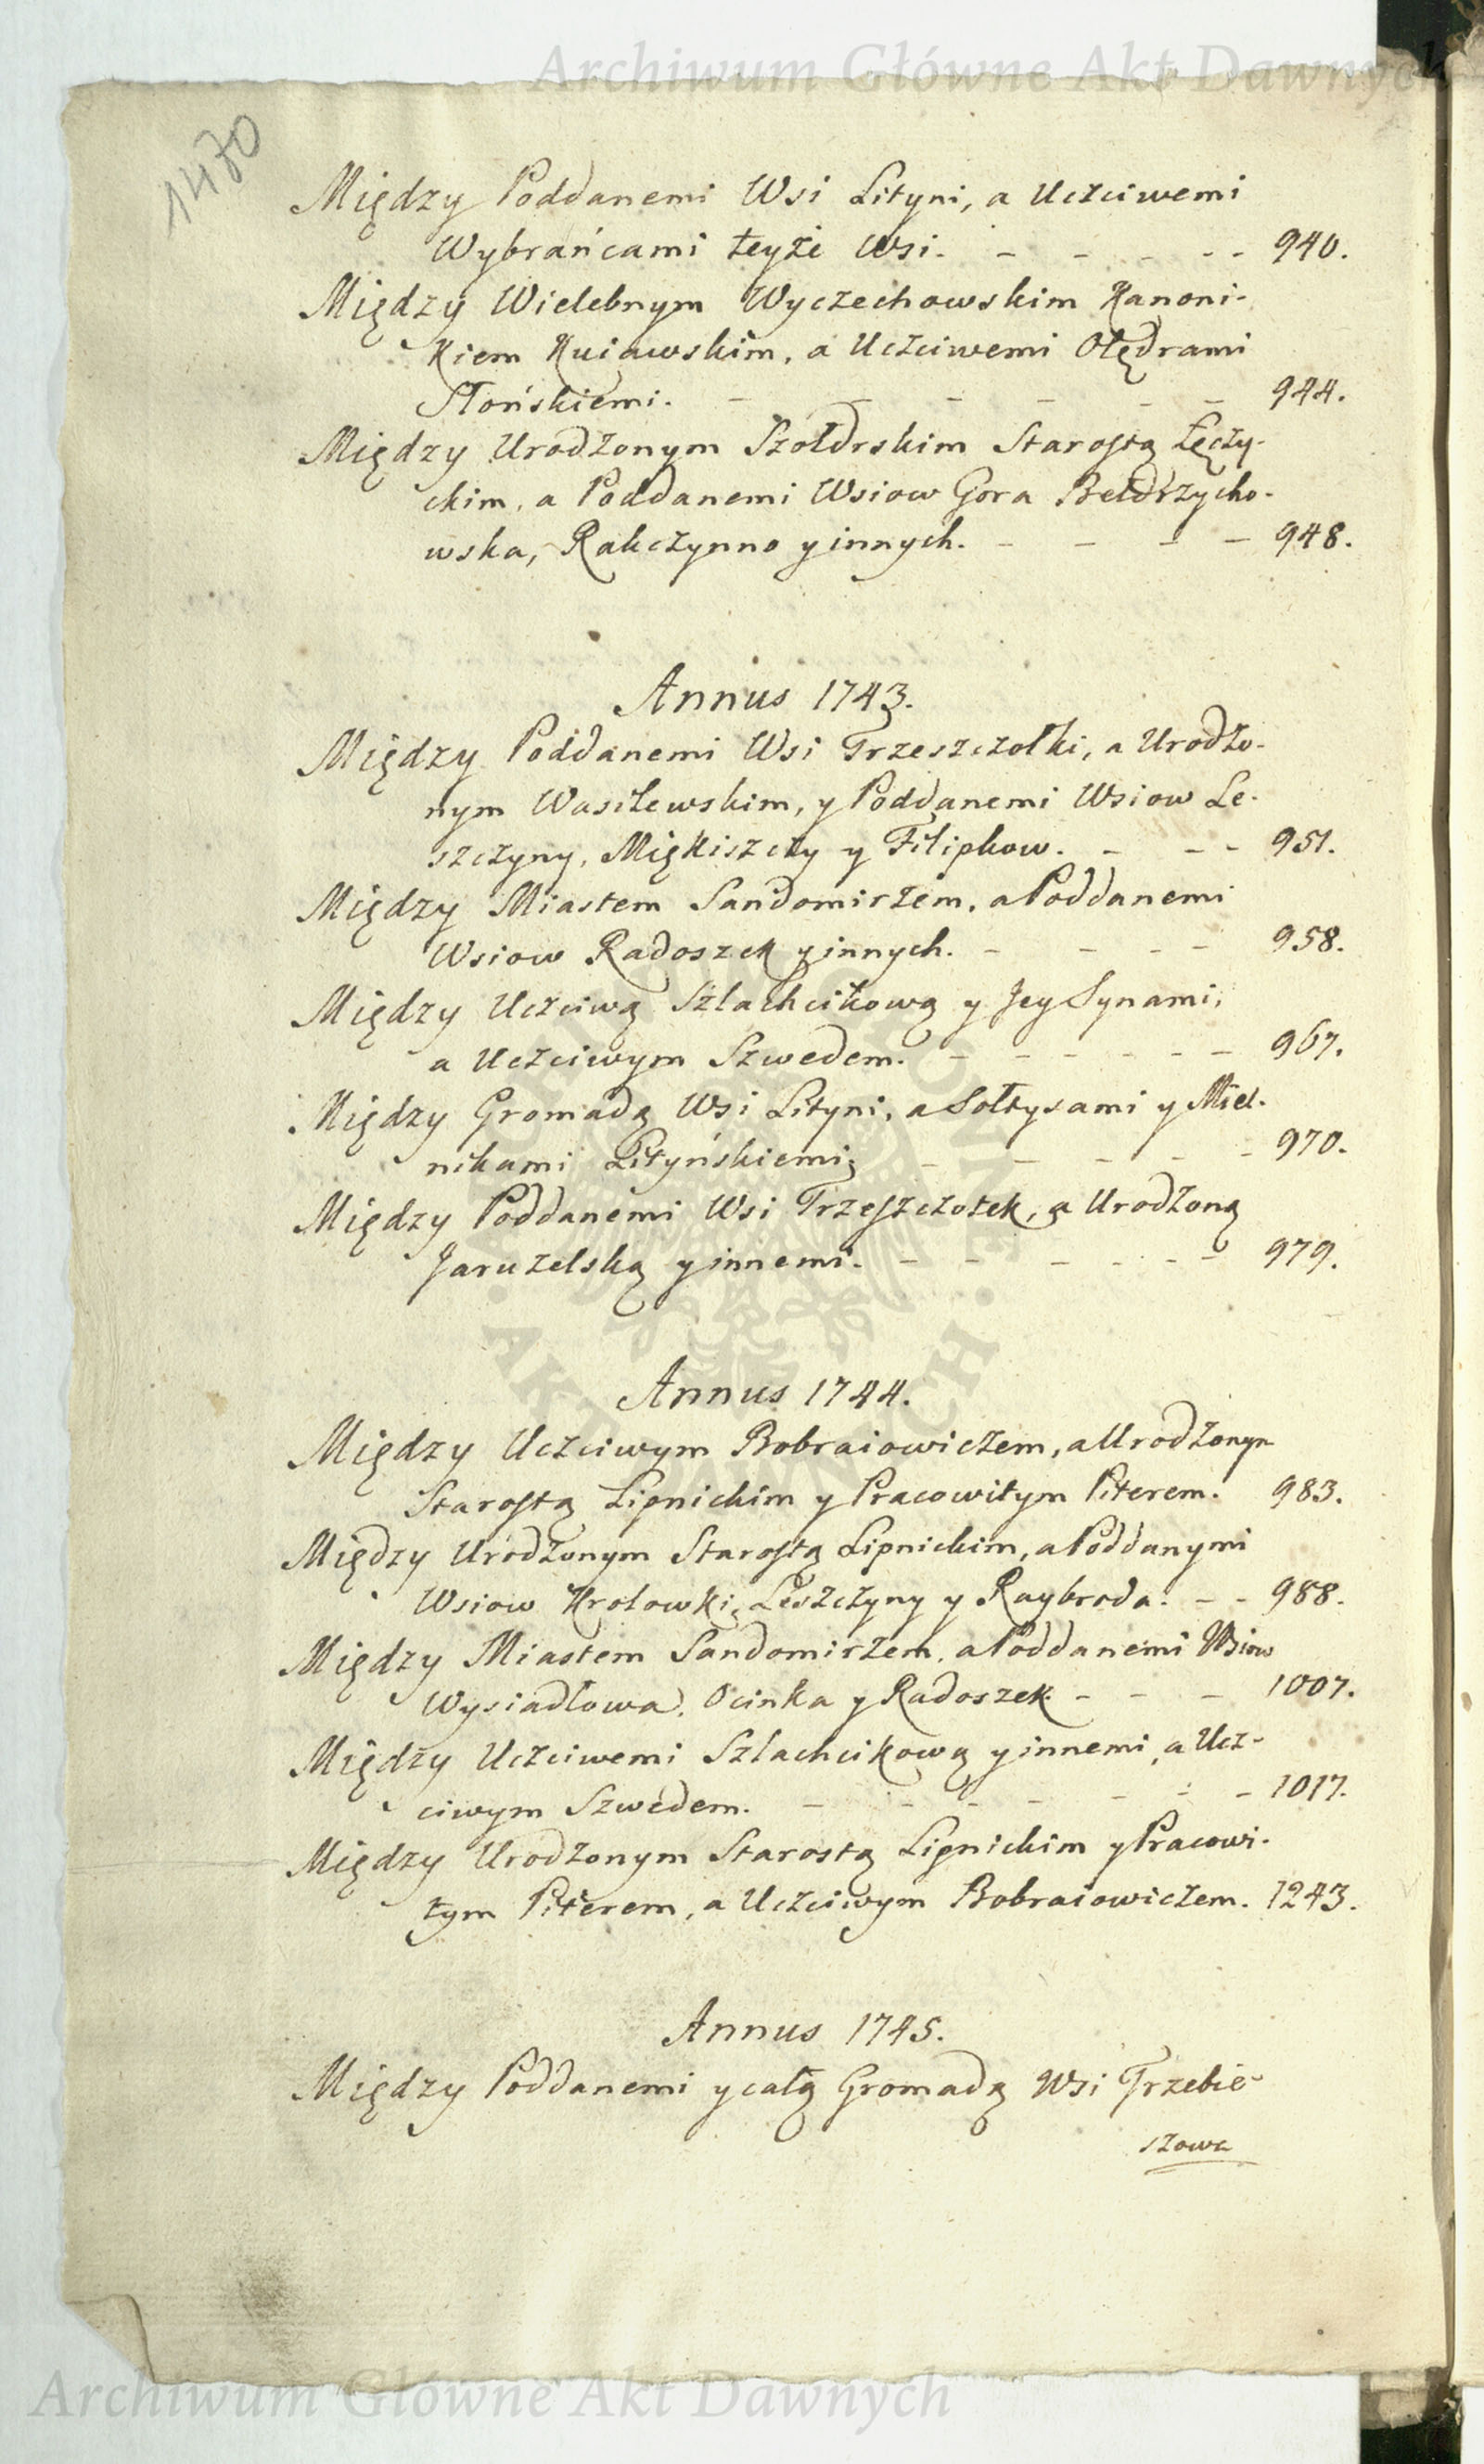 Archiwum Główne Akt Dawnych
1470
Między Poddanemi Wsi Lityni, a Uczciwemi
Wybrańcami teyże Wsi. - - - - - 940.
Między Wielebnym Wyczechowskim Kanoni-
kiem Kuiawskim, a Uczciwemi Olędrami
Słońskiemi. - - - - - - 944.
Między Urodzonym Szołdrskim Starostą Łęczy-
ckim, a Poddanemi Wsiow Gora Bełdrzycho-
wska, Rakczynno y innych. - - - - 948.
Annus 1743.
Między Poddanemi Wsi Trzeszczotki, a Urodzo-
nym Wasilewskim, y Poddanemi Wsiow Le-
szczyny, Miękiszczy y Filipkow. - - - 951.
Między Miastem Sandomirzem, a Poddanemi
Wsiow Radoszek y innych. - - - - 958.
Między Uczciwą Szlachcikową y Jey Synami,
a Uczciwym Szwedem. - - - - - - 967.
Między Gromadą Wsi Lityni, a Sołtysami y Miel-
nikami Lityńskiemi - - - - - 970.
Między Poddanemi Wsi Trzeszczotek, a Urodzoną
Jaruzelską y innemi. - - - - - - 979.
Annus 1744.
Między Uczciwym Bobraiowiczem, a Urodzonym
Starostą Lipnickim y Pracowitym Piterem. 983.
Między Urodzonym Starostą Lipnickim, a Poddanymi
Wsiow Krolowki, Leszczyny y Raybroda. - - 988.
Między Miastem Sandomirzem, a Poddanemi Wsiow
Wysiadłowa, Ocinka y Radoszek. - - - 1007.
Między Uczciwemi Szlachcikową y innemi, a Ucz-
ciwym Szwedem. - - - - - - - 1017.
Między Urodzonym Starostą Lipnickim y Pracowi-
tym Piterem, a Uczciwym Bobraiowiczem. 1243.
Annus 1745.
Między Poddanemi y całą Gromadą Wsi Trzebie-
szowa
Archiwum Główne Akt Dawnych